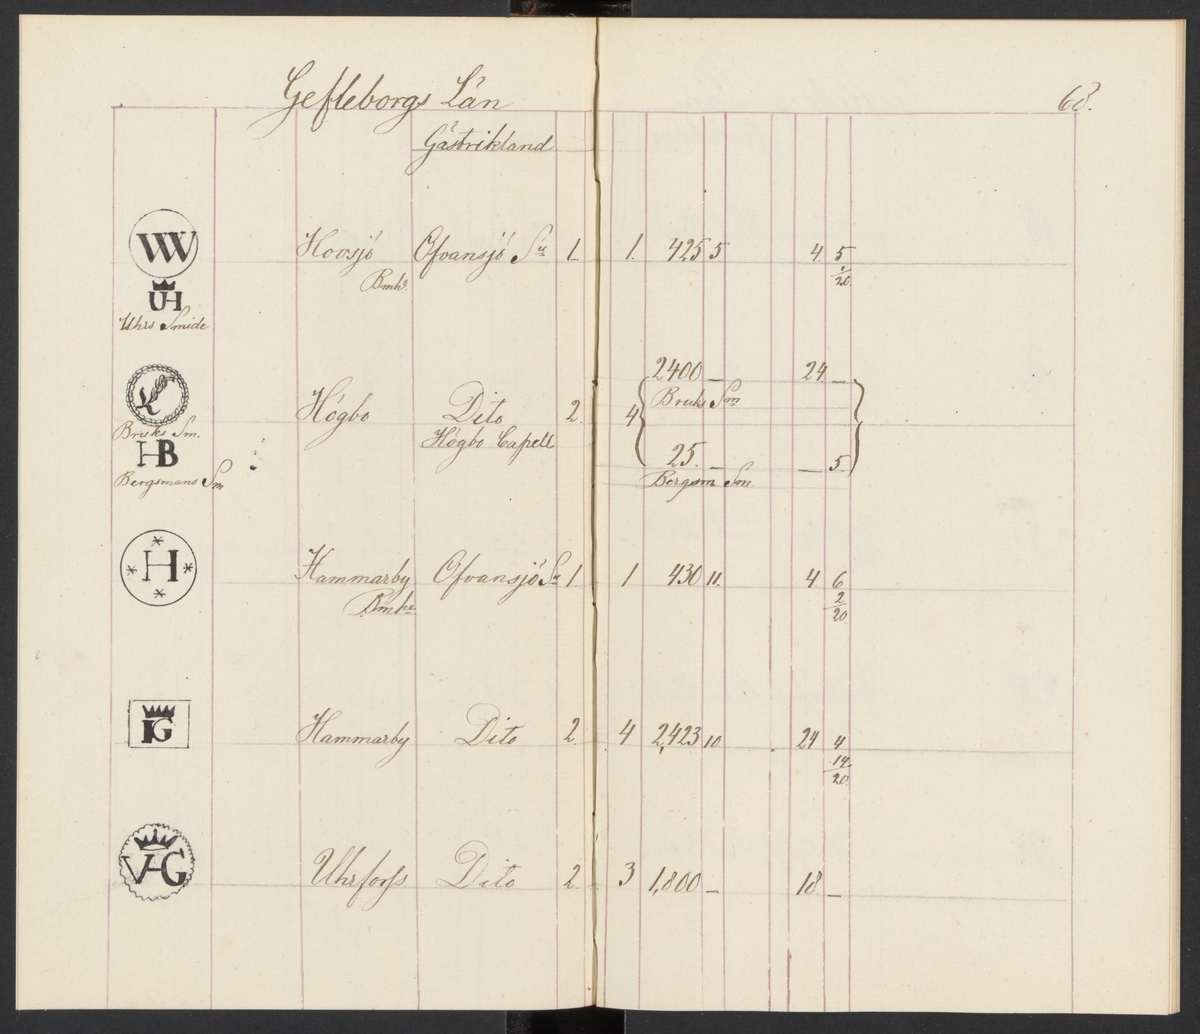 Gefleborgs Län 68.
Gästrikland
W
Hoosjö Ofvansjö Sn 1. 1. 425 5 4 5
Bmhr 1/20
UH
Uhrs Smide
2400 — 24 —
Bruks Sm
Högbo Dito 2. 4
Bruks Sm. Högbo Capell
HB 25. — — 5.
Bergsmans Sm Bergsm Sm
H
Hammarby Ofvansjö Sn 1. 1 430 11. 4 6
Bmhr 2/20
HG
Hammarby Dito 2. 4 2,423 10 24 4
14/20
VHG
Uhrforss Dito 2 3 1,800 — 18 —